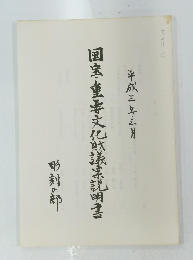 平成三年三月
国宝・重要文化財議案説明書
彫刻の部